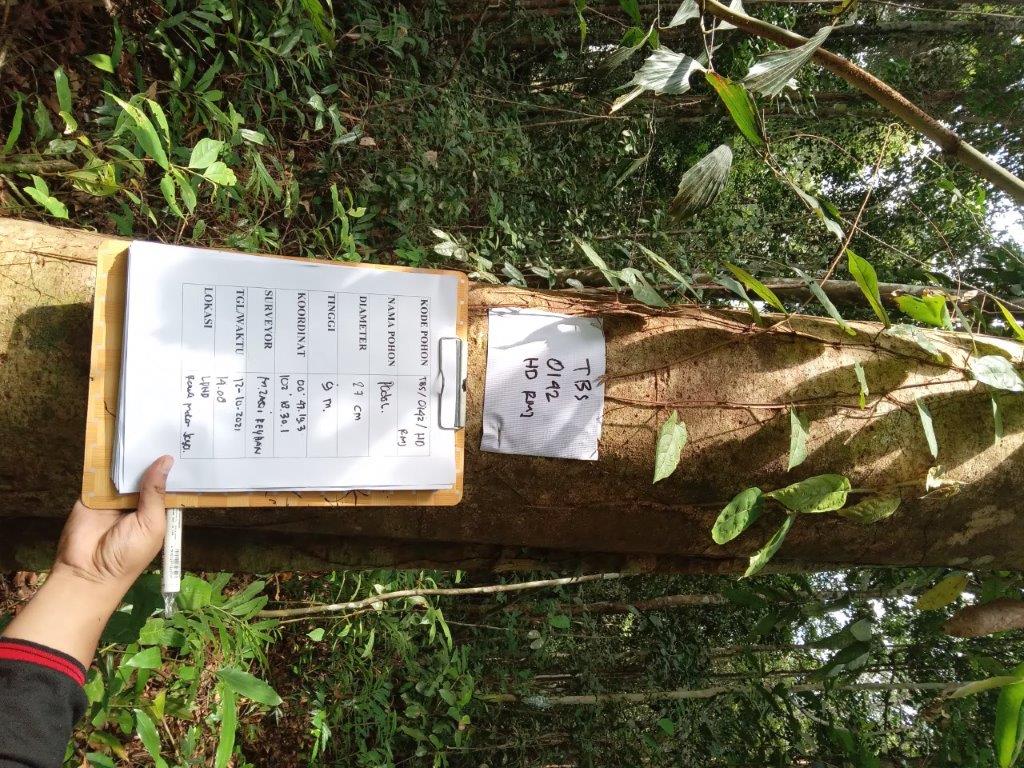 TBS
0142
HD RMJ
KODE POHON TBS/0142/HD
RMJ
NAMA POHON
DIAMETER 27 CM
TINGGI 9 m.
KOORDINAT 00° 47.19.3
102° 18.30.1
SURVEYOR
TGL/WAKTU 12-10-2021
14.00
LOKASI LPHD